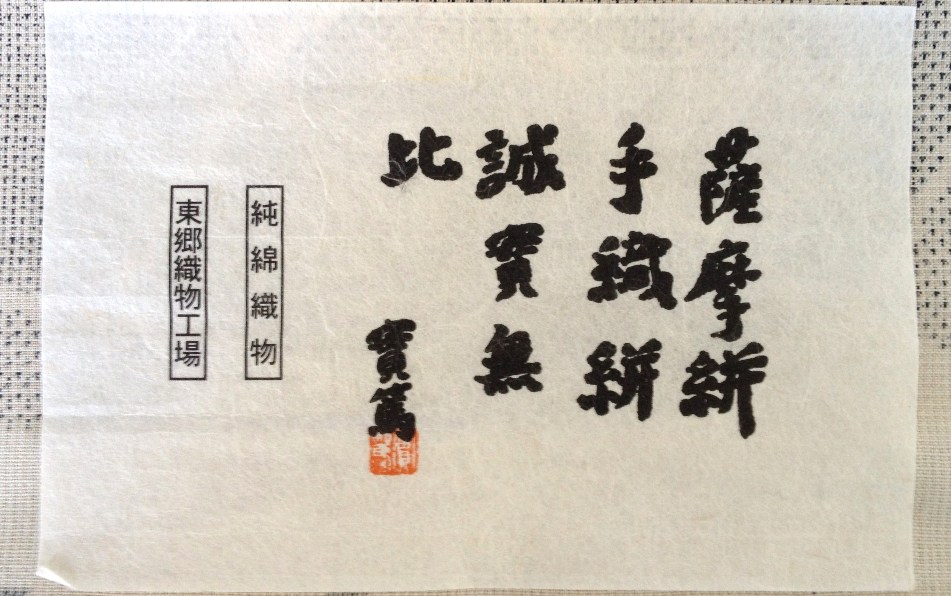 薩摩絣
手織絣
誠實無
比
實篤
純綿織物
東郷織物工場